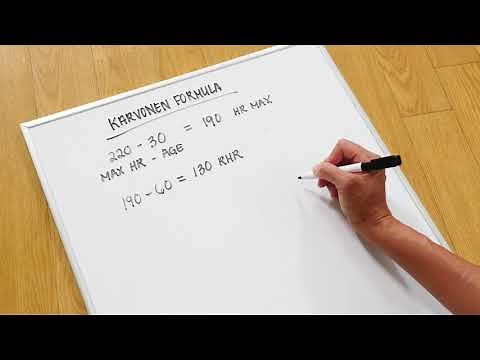 KARVONEN FORMULA
220 - 30 = 190 HR MAX
MAX HR - AGE
190 - 60 = 130 RHR